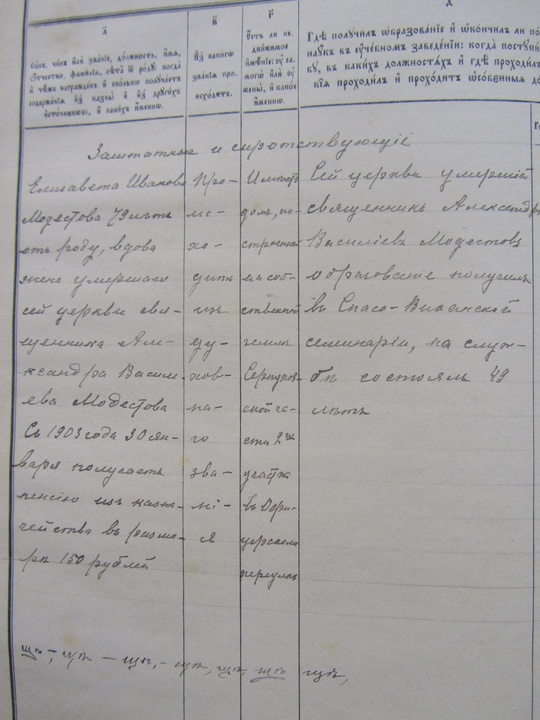 а
в
г
д
Санъ, чинъ или званіе, должность, имя,
отчество, фамилія, лѣта ѿ роду: когда
и чѣмъ награжденъ и сколько получаетъ
содержанія из казны и из другихъ
источниковъ, и какихъ именно.
Из какого
званія про-
исходитъ.
Есть ли не-
движимое
имѣніе: у са-
мого или у
жены, и какое
именно.
Гдѣ получилъ ѡбразованіе и ѡкончилъ ли
наукъ въ учебномъ заведеніи: когда поступи
въ какихъ должностяхъ и гдѣ проходил
кія проходилъ и проходитъ ѡсобенныя до
Заштатные и сиротствующіе
Елизавета Иванова
Модестова 79 лѣтъ
отъ роду, вдова
жена умершаго
сей церкви свя-
щенника Але-
ксандра Васил-
ева Модестова
Съ 1903 года 30 ян-
варя получаетъ
пенсію изъ казна-
чейства въ размѣ-
рѣ 150 рублей
Про-
ис-
хо-
дитъ
изъ
ду-
хов-
на-
го
зва-
ні-
я
Имѣетъ
домъ, по-
строенный
на соб-
ственной
землѣ
Серпухов-
ской ча-
сти 2го
участка
въ
переулкѣ
Сей церкви умершій
священникъ Александръ
Василіевъ Модестовъ
образованіе получилъ
въ Спасо-Виѳанской
семинаріи, на служ-
бѣ состоялъ 49
лѣтъ